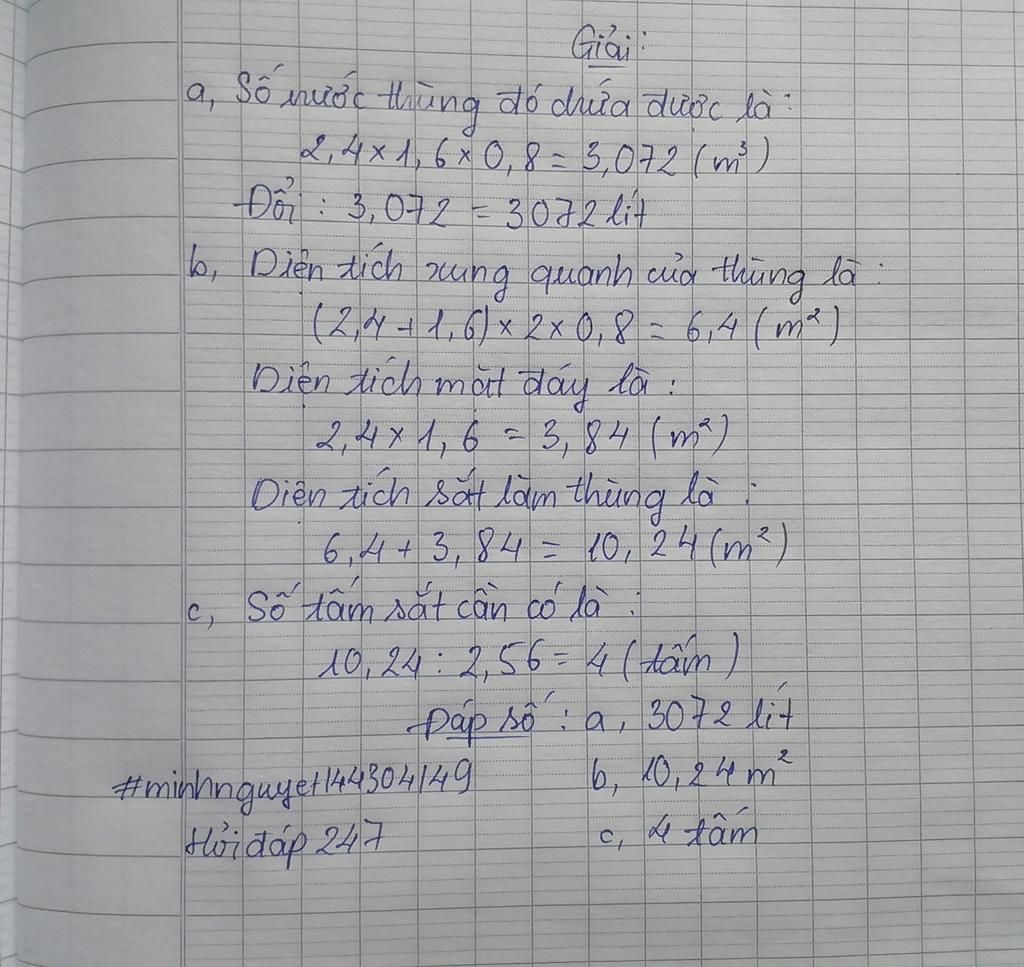 Giải:
a, Số nước thùng đó chứa được là:
2,4 × 1,6 × 0,8 = 3,072 (m³)
Đổi : 3,072 = 3072 lít
b, Diện tích xung quanh của thùng là :
(2,4 + 1,6) × 2 × 0,8 = 6,4 (m²)
Diện tích mặt đáy là :
2,4 × 1,6 = 3,84 (m²)
Diện tích sắt làm thùng là :
6,4 + 3,84 = 10,24 (m²)
c, Số tấm sắt cần có là :
10,24 : 2,56 = 4 (tấm)
Đáp số : a, 3072 lít
b, 10,24 m²
c, 4 tấm
#minhnguyet144304149
Hỏi đáp 247